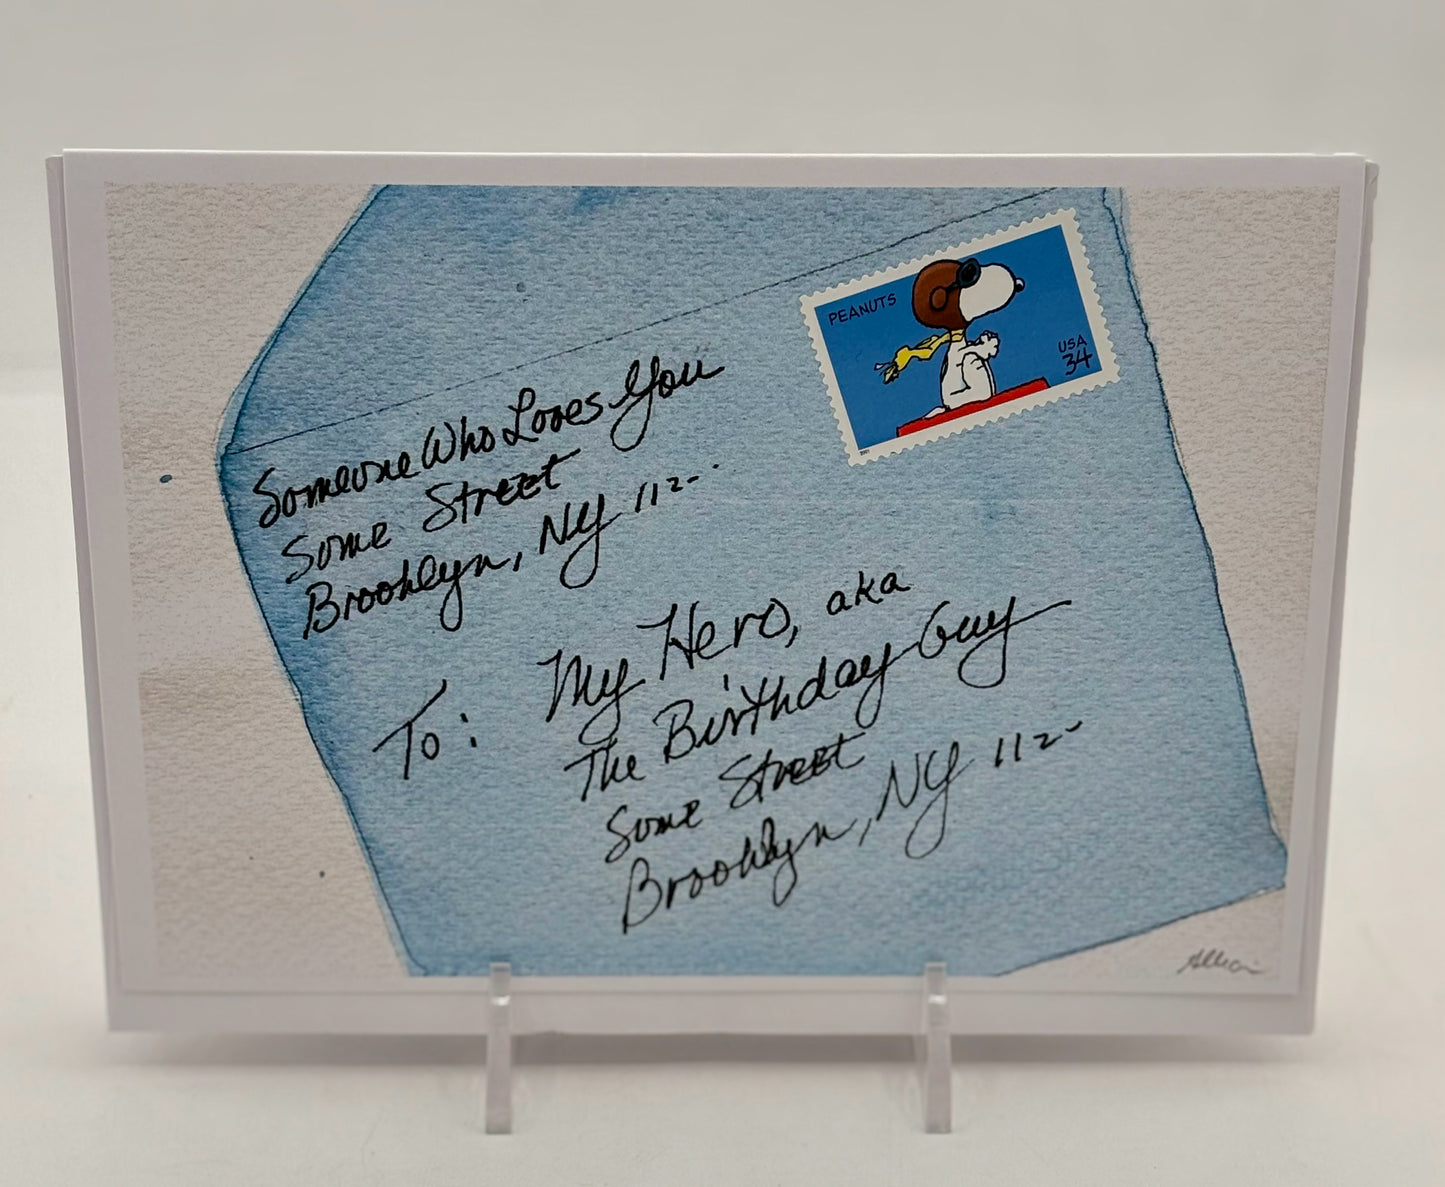 Someone Who Loves You
Some Street
Brooklyn, NY 112--
To: My Hero, aka
The Birthday Guy
Some Street
Brooklyn, NY 112-
PEANUTS
USA
34
2001